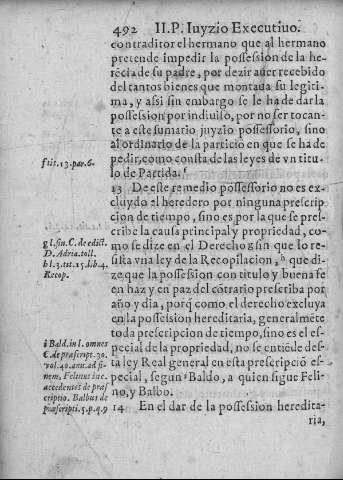 492 II.P. Iuyzio Executiuo.
contraditor el hermano que al hermano
pretende impedir la possession de la he-
rẽcia de su padre, por dezir auer recebido
del tantos bienes que montaua su legiti-
ma, y assi sin embargo se le ha de dar la
possession por indiuiso, por no ser tocan-
te a este sumario juyzio possessorio, sino
al ordinario de la particiõ en que se ha de
pedir, como consta de las leyes de vn titu-
lo de Partida. f
f tit. 13. par. 6.
13 De este remedio possessorio no es ex-
cluydo el heredero por ninguna prescrip
cion de tiempo, sino es por la que se pres-
cribe la causa principal y propriedad, co-
mo se dize en el Derecho g sin que lo re-
sista vna ley de la Recopilacion, h que di-
ze que la possession con titulo y buena fe
en haz y en paz del cõtrario prescriba por
año y dia, porq̃ como el derecho excluya
en la possession hereditaria, generalmẽte
toda prescripcion de tiempo, sino es el es-
pecial de la propriedad, no se entiẽde des-
ta ley Real general en esta prescripciõ es-
pecial, segun i Baldo, a quien sigue Feli-
no, y Balbo.
g l. fin. C. de edict.
D. Adria. toll.
h l. 3. tit. 15. lib. 4.
Recop.
i Bald. in l. omnes
C. de præscript. 30.
vel. 40. ann. ad fi-
nem, Felinus in c.
accedentes de præs
criptio. Balbus de
præscripti. 5. p. q. 9
14 En el dar de la possession heredita-
ria,